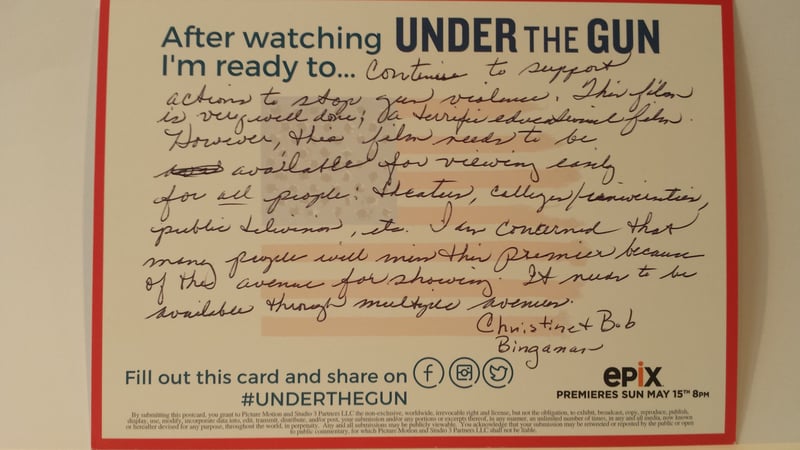 After watching UNDER THE GUN
I'm ready to... Continue to support
actions to stop gun violence. This film
is very well done; a terrific educational film.
However, this film needs to be
available for viewing easily
for all people: theaters, colleges/universities,
public television, etc. I am concerned that
many people will miss this premier because
of the avenue for showing. It needs to be
available through multiple avenues.
Christine + Bob
Bingaman
Fill out this card and share on
#UNDERTHEGUN
epix
PREMIERES SUN MAY 15TH 8PM
By submitting this postcard, you grant to Picture Motion and Studio 3 Partners LLC the non-exclusive, worldwide, irrevocable right and license, but not the obligation, to exhibit, broadcast, copy, reproduce, publish,
display, use, modify, incorporate data into, edit, transmit, distribute, and/or post, your submission and/or any portions or excerpts thereof, in any manner, an unlimited number of times, in any and all media, now known
or hereafter devised for any purpose, throughout the world, in perpetuity. Any and all submissions may be publicly viewable. You acknowledge that your submission may be retweeted or reposted by the public or open
to public commentary, for which Picture Motion and Studio 3 Partners LLC shall not be liable.